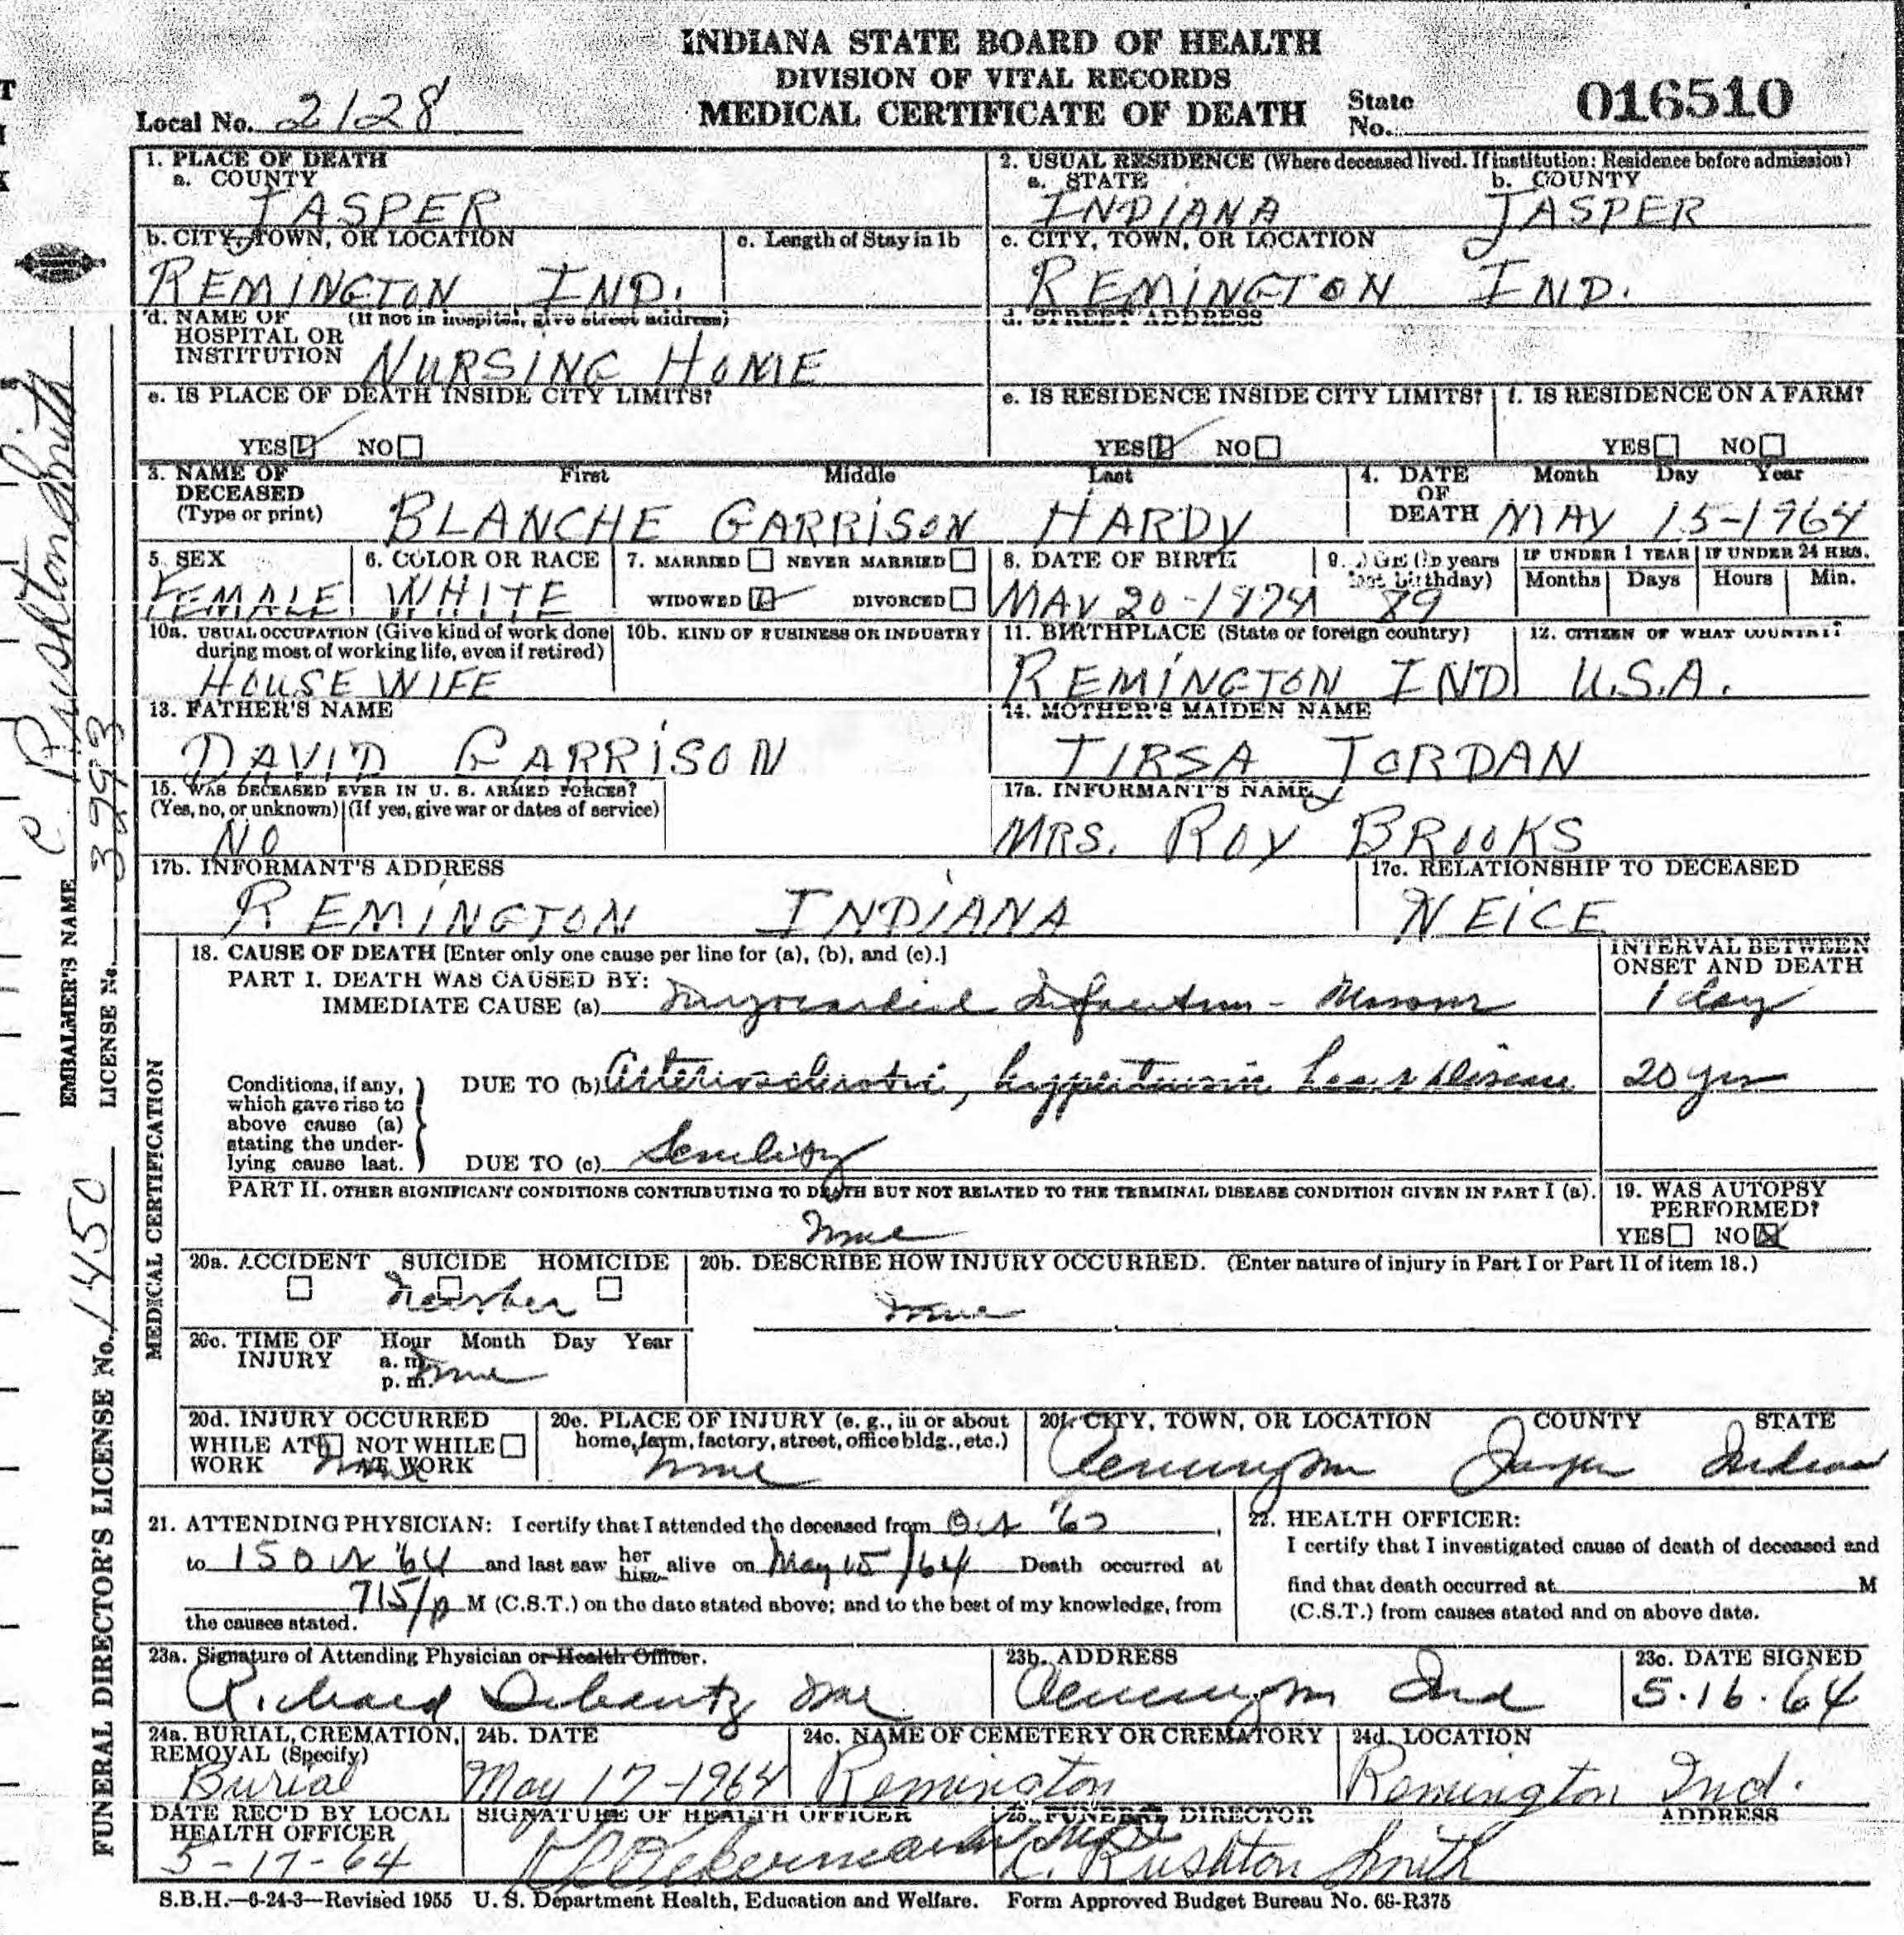 INDIANA STATE BOARD OF HEALTH
DIVISION OF VITAL RECORDS
MEDICAL CERTIFICATE OF DEATH
Local No. 2128
State No. 016510
1. PLACE OF DEATH
a. COUNTY
JASPER
b. CITY, TOWN, OR LOCATION
REMINGTON IND.
c. Length of Stay in 1b
d. NAME OF HOSPITAL OR INSTITUTION (If not in hospital, give street address)
NURSING HOME
e. IS PLACE OF DEATH INSIDE CITY LIMITS?
YES NO
2. USUAL RESIDENCE (Where deceased lived. If institution: Residence before admission)
a. STATE b. COUNTY
INDIANA JASPER
c. CITY, TOWN, OR LOCATION
REMINGTON IND.
d. STREET ADDRESS
e. IS RESIDENCE INSIDE CITY LIMITS? f. IS RESIDENCE ON A FARM?
YES NO YES NO
3. NAME OF DECEASED (Type or print) First Middle Last
BLANCHE GARRISON HARDY
4. DATE OF DEATH Month Day Year
MAY 15-1964
5. SEX
FEMALE
6. COLOR OR RACE
WHITE
7. MARRIED NEVER MARRIED
WIDOWED DIVORCED
8. DATE OF BIRTH
MAY 20-1874
9. AGE (In years last birthday)
89
IF UNDER 1 YEAR IF UNDER 24 HRS.
Months Days Hours Min.
10a. USUAL OCCUPATION (Give kind of work done during most of working life, even if retired)
HOUSE WIFE
10b. KIND OF BUSINESS OR INDUSTRY
11. BIRTHPLACE (State or foreign country)
REMINGTON IND
12. CITIZEN OF WHAT COUNTRY?
U.S.A.
13. FATHER'S NAME
DAVID GARRISON
14. MOTHER'S MAIDEN NAME
TIRSA JORDAN
15. WAS DECEASED EVER IN U. S. ARMED FORCES?
(Yes, no, or unknown) (If yes, give war or dates of service)
NO
17a. INFORMANT'S NAME
MRS. ROY BROOKS
17b. INFORMANT'S ADDRESS
REMINGTON INDIANA
17c. RELATIONSHIP TO DECEASED
NEICE
MEDICAL CERTIFICATION
18. CAUSE OF DEATH [Enter only one cause per line for (a), (b), and (c).]
INTERVAL BETWEEN ONSET AND DEATH
PART I. DEATH WAS CAUSED BY:
IMMEDIATE CAUSE (a) Myocardial Infarction - Massive 1 day
Conditions, if any, which gave rise to above cause (a) stating the underlying cause last.
DUE TO (b) Arteriosclerotic, hypertensive heart disease 20 yrs
DUE TO (c) Senility
PART II. OTHER SIGNIFICANT CONDITIONS CONTRIBUTING TO DEATH BUT NOT RELATED TO THE TERMINAL DISEASE CONDITION GIVEN IN PART I (a).
none
19. WAS AUTOPSY PERFORMED?
YES NO
20a. ACCIDENT SUICIDE HOMICIDE
Neither
20b. DESCRIBE HOW INJURY OCCURRED. (Enter nature of injury in Part I or Part II of item 18.)
none
20c. TIME OF INJURY Hour Month Day Year
a. m.
p. m. none
20d. INJURY OCCURRED
WHILE AT WORK NOT WHILE AT WORK
none
20e. PLACE OF INJURY (e. g., in or about home, farm, factory, street, office bldg., etc.)
none
20f. CITY, TOWN, OR LOCATION COUNTY STATE
Remington Jasper Indiana
21. ATTENDING PHYSICIAN: I certify that I attended the deceased from
to and last saw her him alive on May 15/64 Death occurred at
715/p M (C.S.T.) on the date stated above; and to the best of my knowledge, from
the causes stated.
22. HEALTH OFFICER:
I certify that I investigated cause of death of deceased and
find that death occurred at M
(C.S.T.) from causes stated and on above date.
23a. Signature of Attending Physician or Health Officer.
Richard
23b. ADDRESS
Remington Ind
23c. DATE SIGNED
5-16-64
24a. BURIAL, CREMATION, REMOVAL (Specify)
Burial
24b. DATE
May 17-1964
24c. NAME OF CEMETERY OR CREMATORY
Remington
24d. LOCATION
Remington Ind.
DATE REC'D BY LOCAL HEALTH OFFICER
5-17-64
SIGNATURE OF HEALTH OFFICER
25. FUNERAL DIRECTOR ADDRESS
C. Rushton Smith
S.B.H.—6-24-3—Revised 1955 U. S. Department Health, Education and Welfare. Form Approved Budget Bureau No. 68-R375
EMBALMER'S NAME C. Rushton Smith
LICENSE No. 3993
FUNERAL DIRECTOR'S LICENSE No. 1450